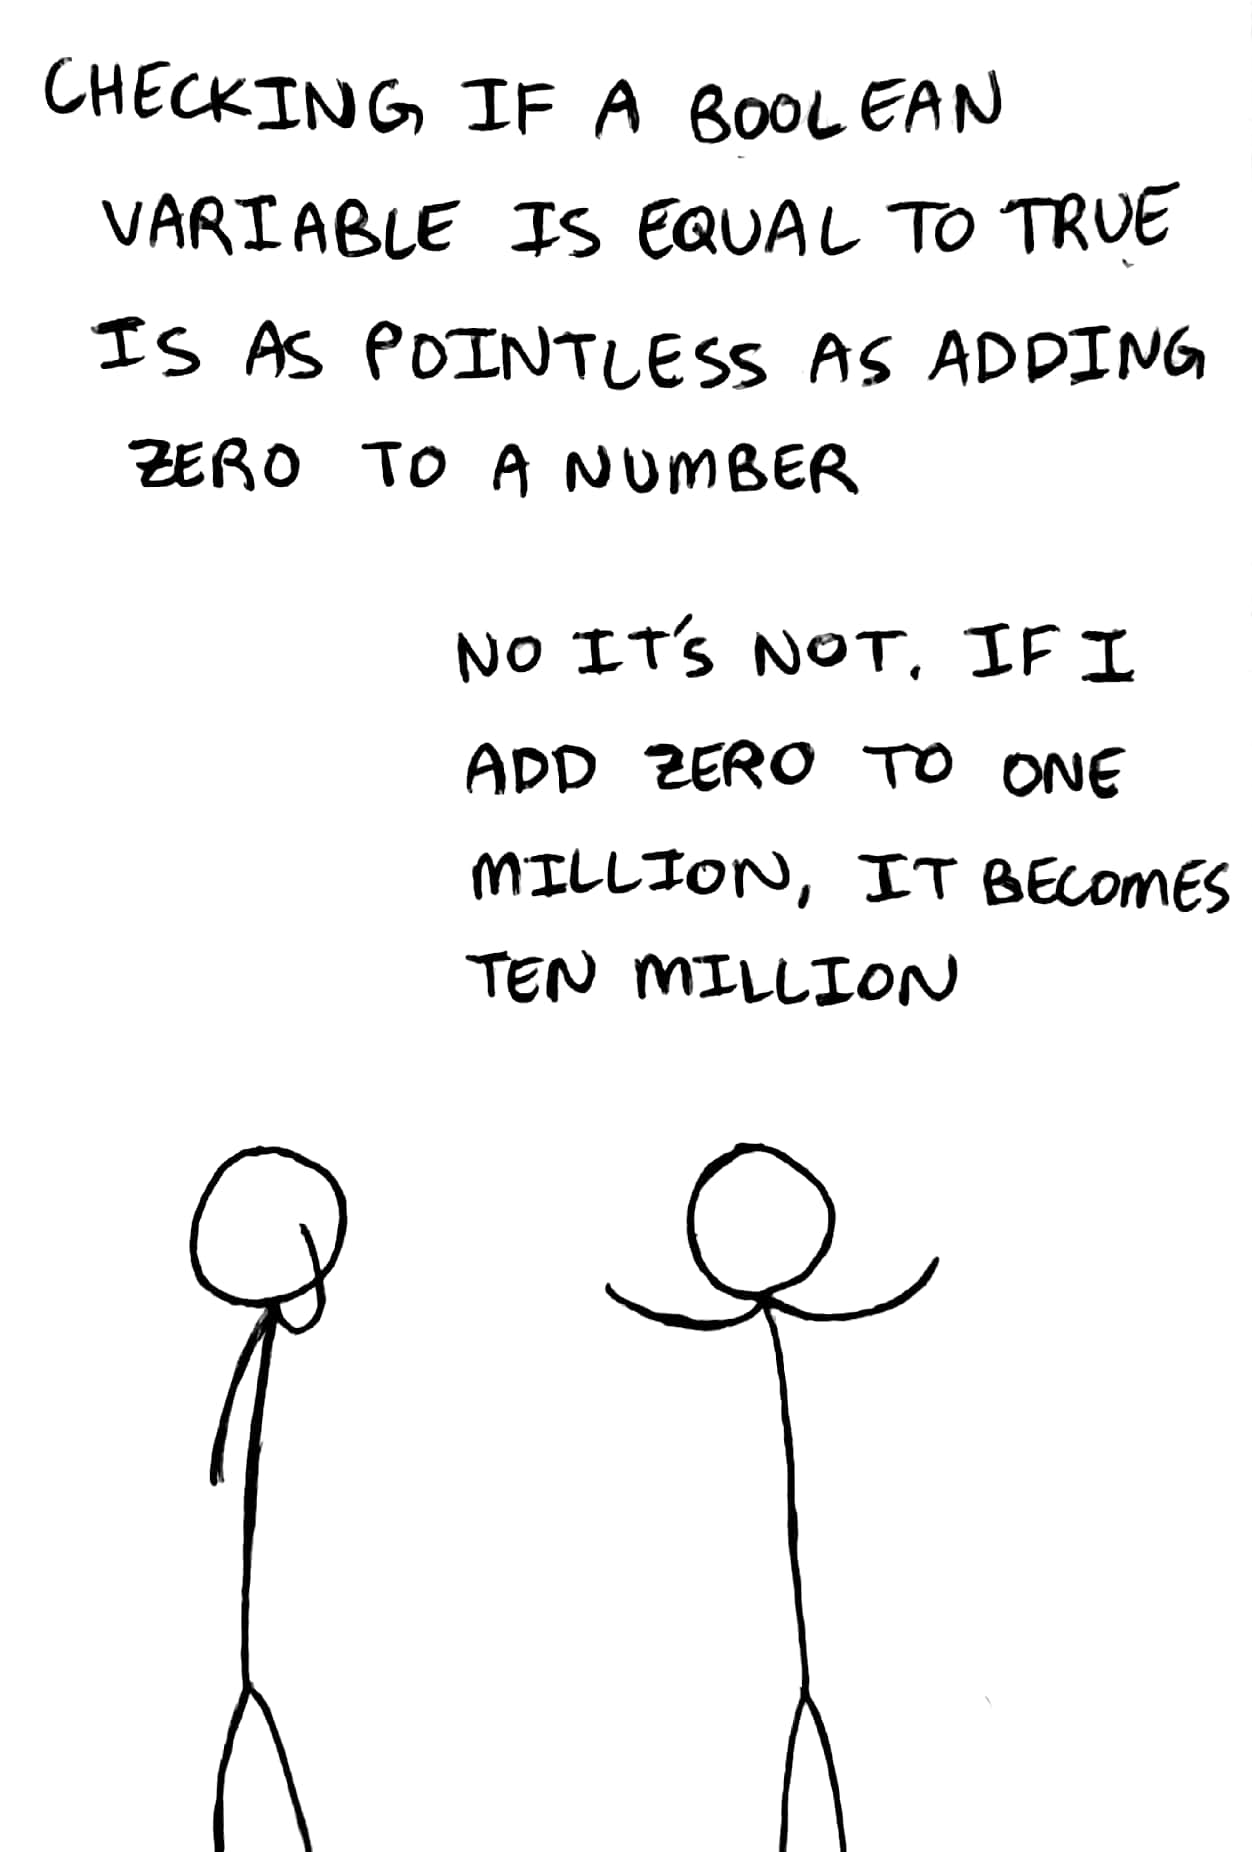 CHECKING IF A BOOLEAN
VARIABLE IS EQUAL TO TRUE
IS AS POINTLESS AS ADDING
ZERO TO A NUMBER
NO IT'S NOT. IF I
ADD ZERO TO ONE
MILLION, IT BECOMES
TEN MILLION